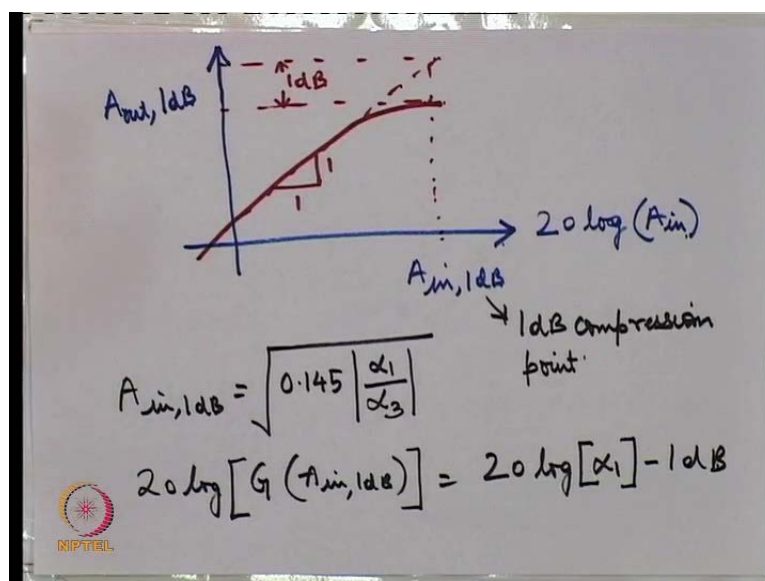 1dB
A_out, 1dB
1
1
20 log (A_in)
A_in, 1dB
1dB compression
point.
A_in, 1dB = √(0.145 |α₁/α₃|)
20 log [G (A_in, 1dB)] = 20 log [α₁] - 1dB
NPTEL